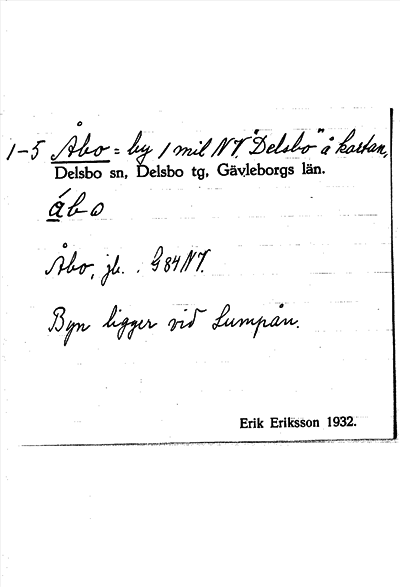 1-5 Åbo = by 1 mil NV. "Delsbo" å kartan,
Delsbo sn, Delsbo tg, Gävleborgs län.
ábo
Åbo, jb. . G84NV.
Byn ligger vid Lumpån.
Erik Eriksson 1932.